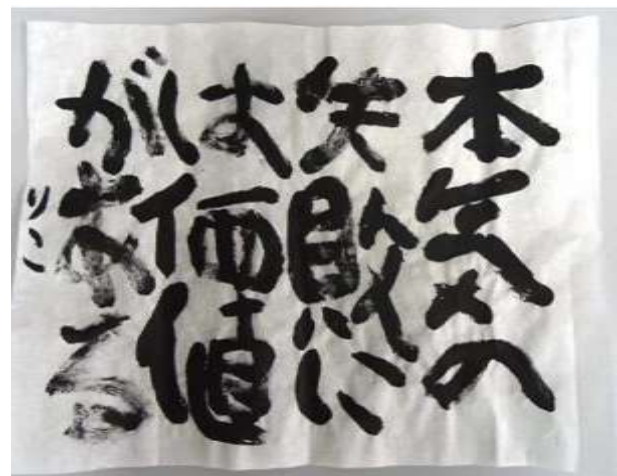 本気の
失敗に
は価値
がある
りこ